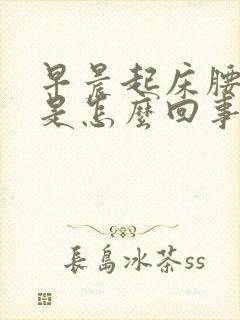 早晨起床腰
是怎麼回事
長島冰茶ss